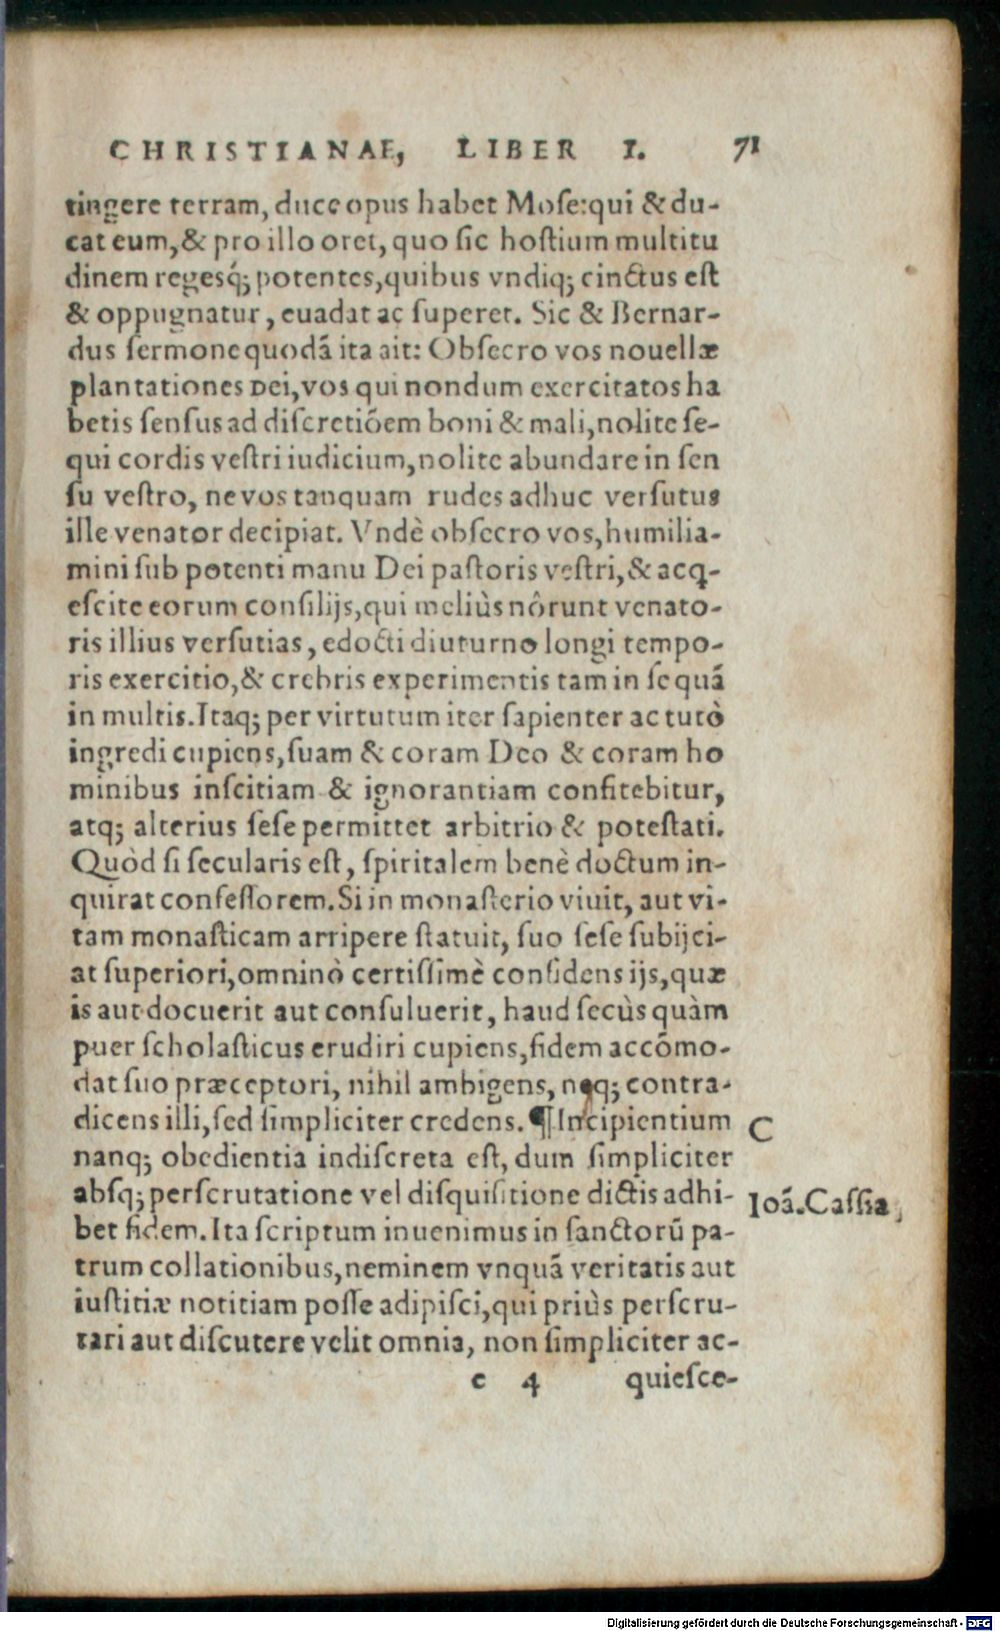 CHRISTIANAE, LIBER I. 71
tingere terram, duce opus habet Mose: qui & du-
cat eum, & pro illo oret, quo sic hostium multitu
dinem regesq́; potentes, quibus vndiq; cinctus est
& oppugnatur, euadat ac superet. Sic & Bernar-
dus sermone quodã ita ait: Obsecro vos nouellæ
plantationes DEI, vos qui nondum exercitatos ha
betis sensus ad discretiõem boni & mali, nolite se-
qui cordis vestri iudicium, nolite abundare in sen
su vestro, ne vos tanquam rudes adhuc versutus
ille venator decipiat. Vndè obsecro vos, humilia-
mini sub potenti manu Dei pastoris vestri, & acq-
escite eorum consilijs, qui meliùs nôrunt venato-
ris illius versutias, edocti diuturno longi tempo-
ris exercitio, & crebris experimentis tam in se quã
in multis. Itaq; per virtutum iter sapienter ac tutò
ingredi cupiens, suam & coram Deo & coram ho
minibus inscitiam & ignorantiam confitebitur,
atq; alterius sese permittet arbitrio & potestati.
Quòd si secularis est, spiritalem benè doctum in-
quirat confessorem. Si in monasterio viuit, aut vi-
tam monasticam arripere statuit, suo sese subijci-
at superiori, omninò certissimè confidens ijs, quæ
is aut docuerit aut consuluerit, haud secùs quàm
puer scholasticus erudiri cupiens, fidem accõmo-
dat suo præceptori, nihil ambigens, neq; contra-
dicens illi, sed simpliciter credens. ¶ Incipientium C
nanq; obedientia indiscreta est, dum simpliciter
absq; perscrutatione vel disquisitione dictis adhi- Ioã. Cassia,
bet fidem. Ita scriptum inuenimus in sanctorũ pa-
trum collationibus, neminem vnquã veritatis aut
iustitiæ notitiam posse adipisci, qui priùs perscru-
tari aut discutere velit omnia, non simpliciter ac-
e 4 quiesce-
Digitalisierung gefördert durch die Deutsche Forschungsgemeinschaft - DFG